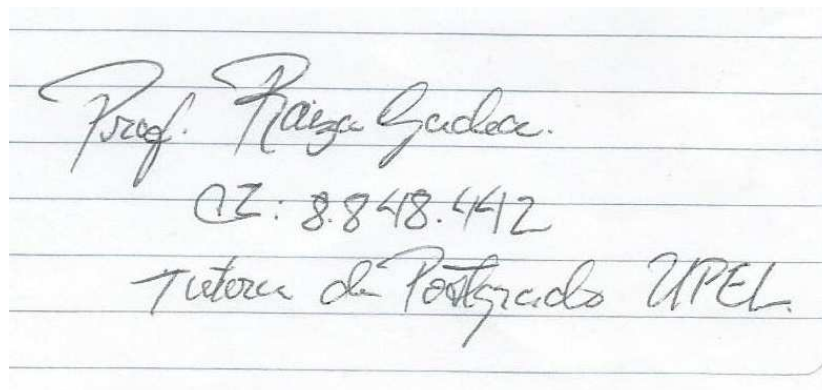 Prof. Raiza Gadea.
CI: 8.848.442
Tutora de Postgrado UPEL.